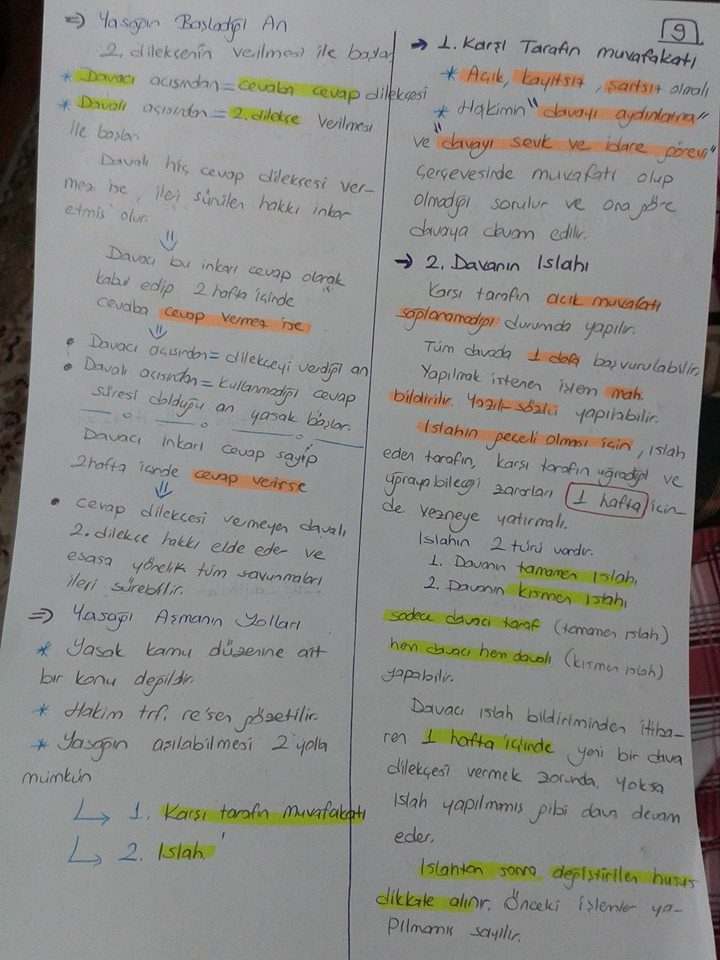 ⇒ Yasağın Başladığı An
2. dilekçenin verilmesi ile başlar
* Davacı açısından = cevaba cevap dilekçesi
* Davalı açısından = 2. dilekçe verilmesi
ile başlar.
Davalı hiç cevap dilekçesi ver-
mez ise, ileri sürülen hakkı inkar
etmiş olur.
⇓
Davacı bu inkarı cevap olarak
kabul edip 2 hafta içinde
cevaba cevap vermez ise
⇓
• Davacı açısından = dilekçeyi verdiği an
• Davalı açısından = kullanmadığı cevap
süresi dolduğu an yasak başlar.
Davacı inkarı cevap sayıp
2 hafta içinde cevap verirse
⇓
• cevap dilekçesi vermeyen davalı
2. dilekçe hakkı elde eder ve
esasa yönelik tüm savunmaları
ileri sürebilir.
⇒ Yasağı Aşmanın Yolları
* Yasak kamu düzenine ait
bir konu değildir.
* Hakim trf. re'sen gözetilir.
* Yasağın aşılabilmesi 2 yolla
mümkün
↳ 1. Karşı tarafın muvafakatı
↳ 2. Islah
9
→ 1. Karşı Tarafın muvafakatı
* Açık, kayıtsız, şartsız olmalı
* Hakimin "davayı aydınlatma"
ve "davayı sevk ve idare görevi"
çerçevesinde muvafatı olup
olmadığı sorulur ve ona göre
davaya devam edilir.
→ 2. Davanın Islahı
Karşı tarafın açık muvafatı
sağlanamadığı durumda yapılır.
Tüm davada 1 defa başvurulabilir.
Yapılmak istenen işlem mah.
bildirilir. Yazılı-sözlü yapılabilir.
Islahın geçerli olması için, ıslah
eden tarafın, karşı tarafın uğradığı ve
uğrayabileceği zararları 1 hafta için-
de vezneye yatırmalı.
Islahın 2 türü vardır.
1. Davanın tamamen ıslahı
2. Davanın kısmen ıslahı
sadece davacı taraf (tamamen ıslah)
hem davacı hem davalı (kısmen ıslah)
yapabilir.
Davacı ıslah bildiriminden itiba-
ren 1 hafta içinde yeni bir dava
dilekçesi vermek zorunda, yoksa
ıslah yapılmamış gibi dava devam
eder.
Islahtan sonra değiştirilen husus
dikkate alınır. Önceki işlemler ya-
pılmamış sayılır.